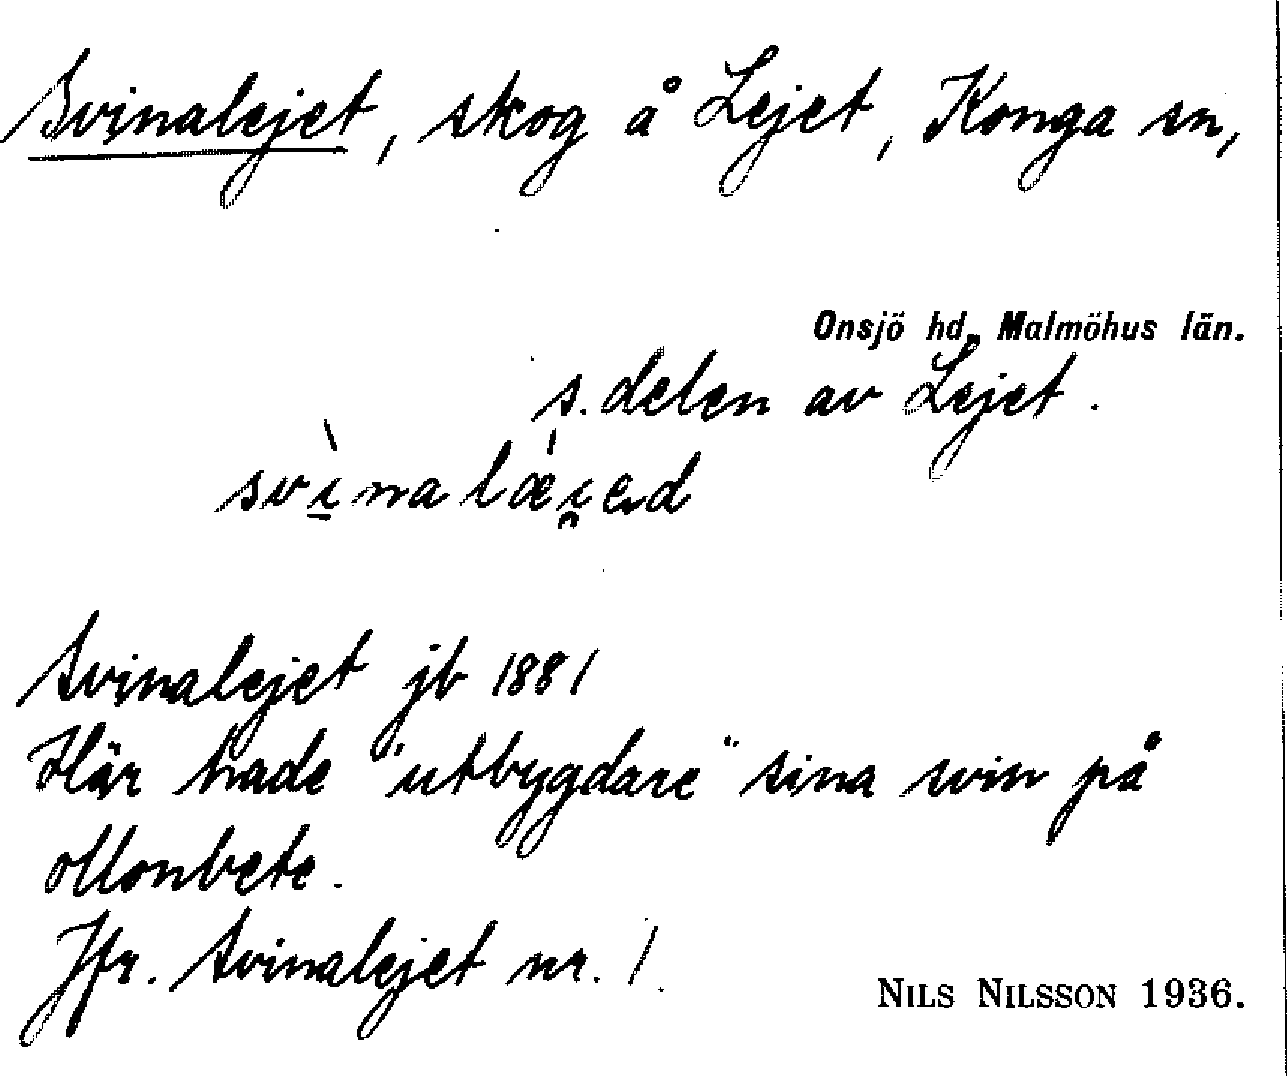 Svinalejet, skog å Lejet, Konga sn,
Onsjö hd, Malmöhus län.
s. delen av Lejet.
svìnalǽi̯ad
Svinalejet jb 1881
Här hade "utbygdare" sina svin på
ollonbete.
Jfr. Svinalejet nr. 1.
NILS NILSSON 1936.